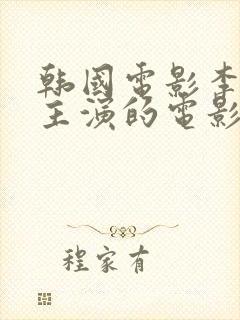 韩國電影李
主演的電影
程家有